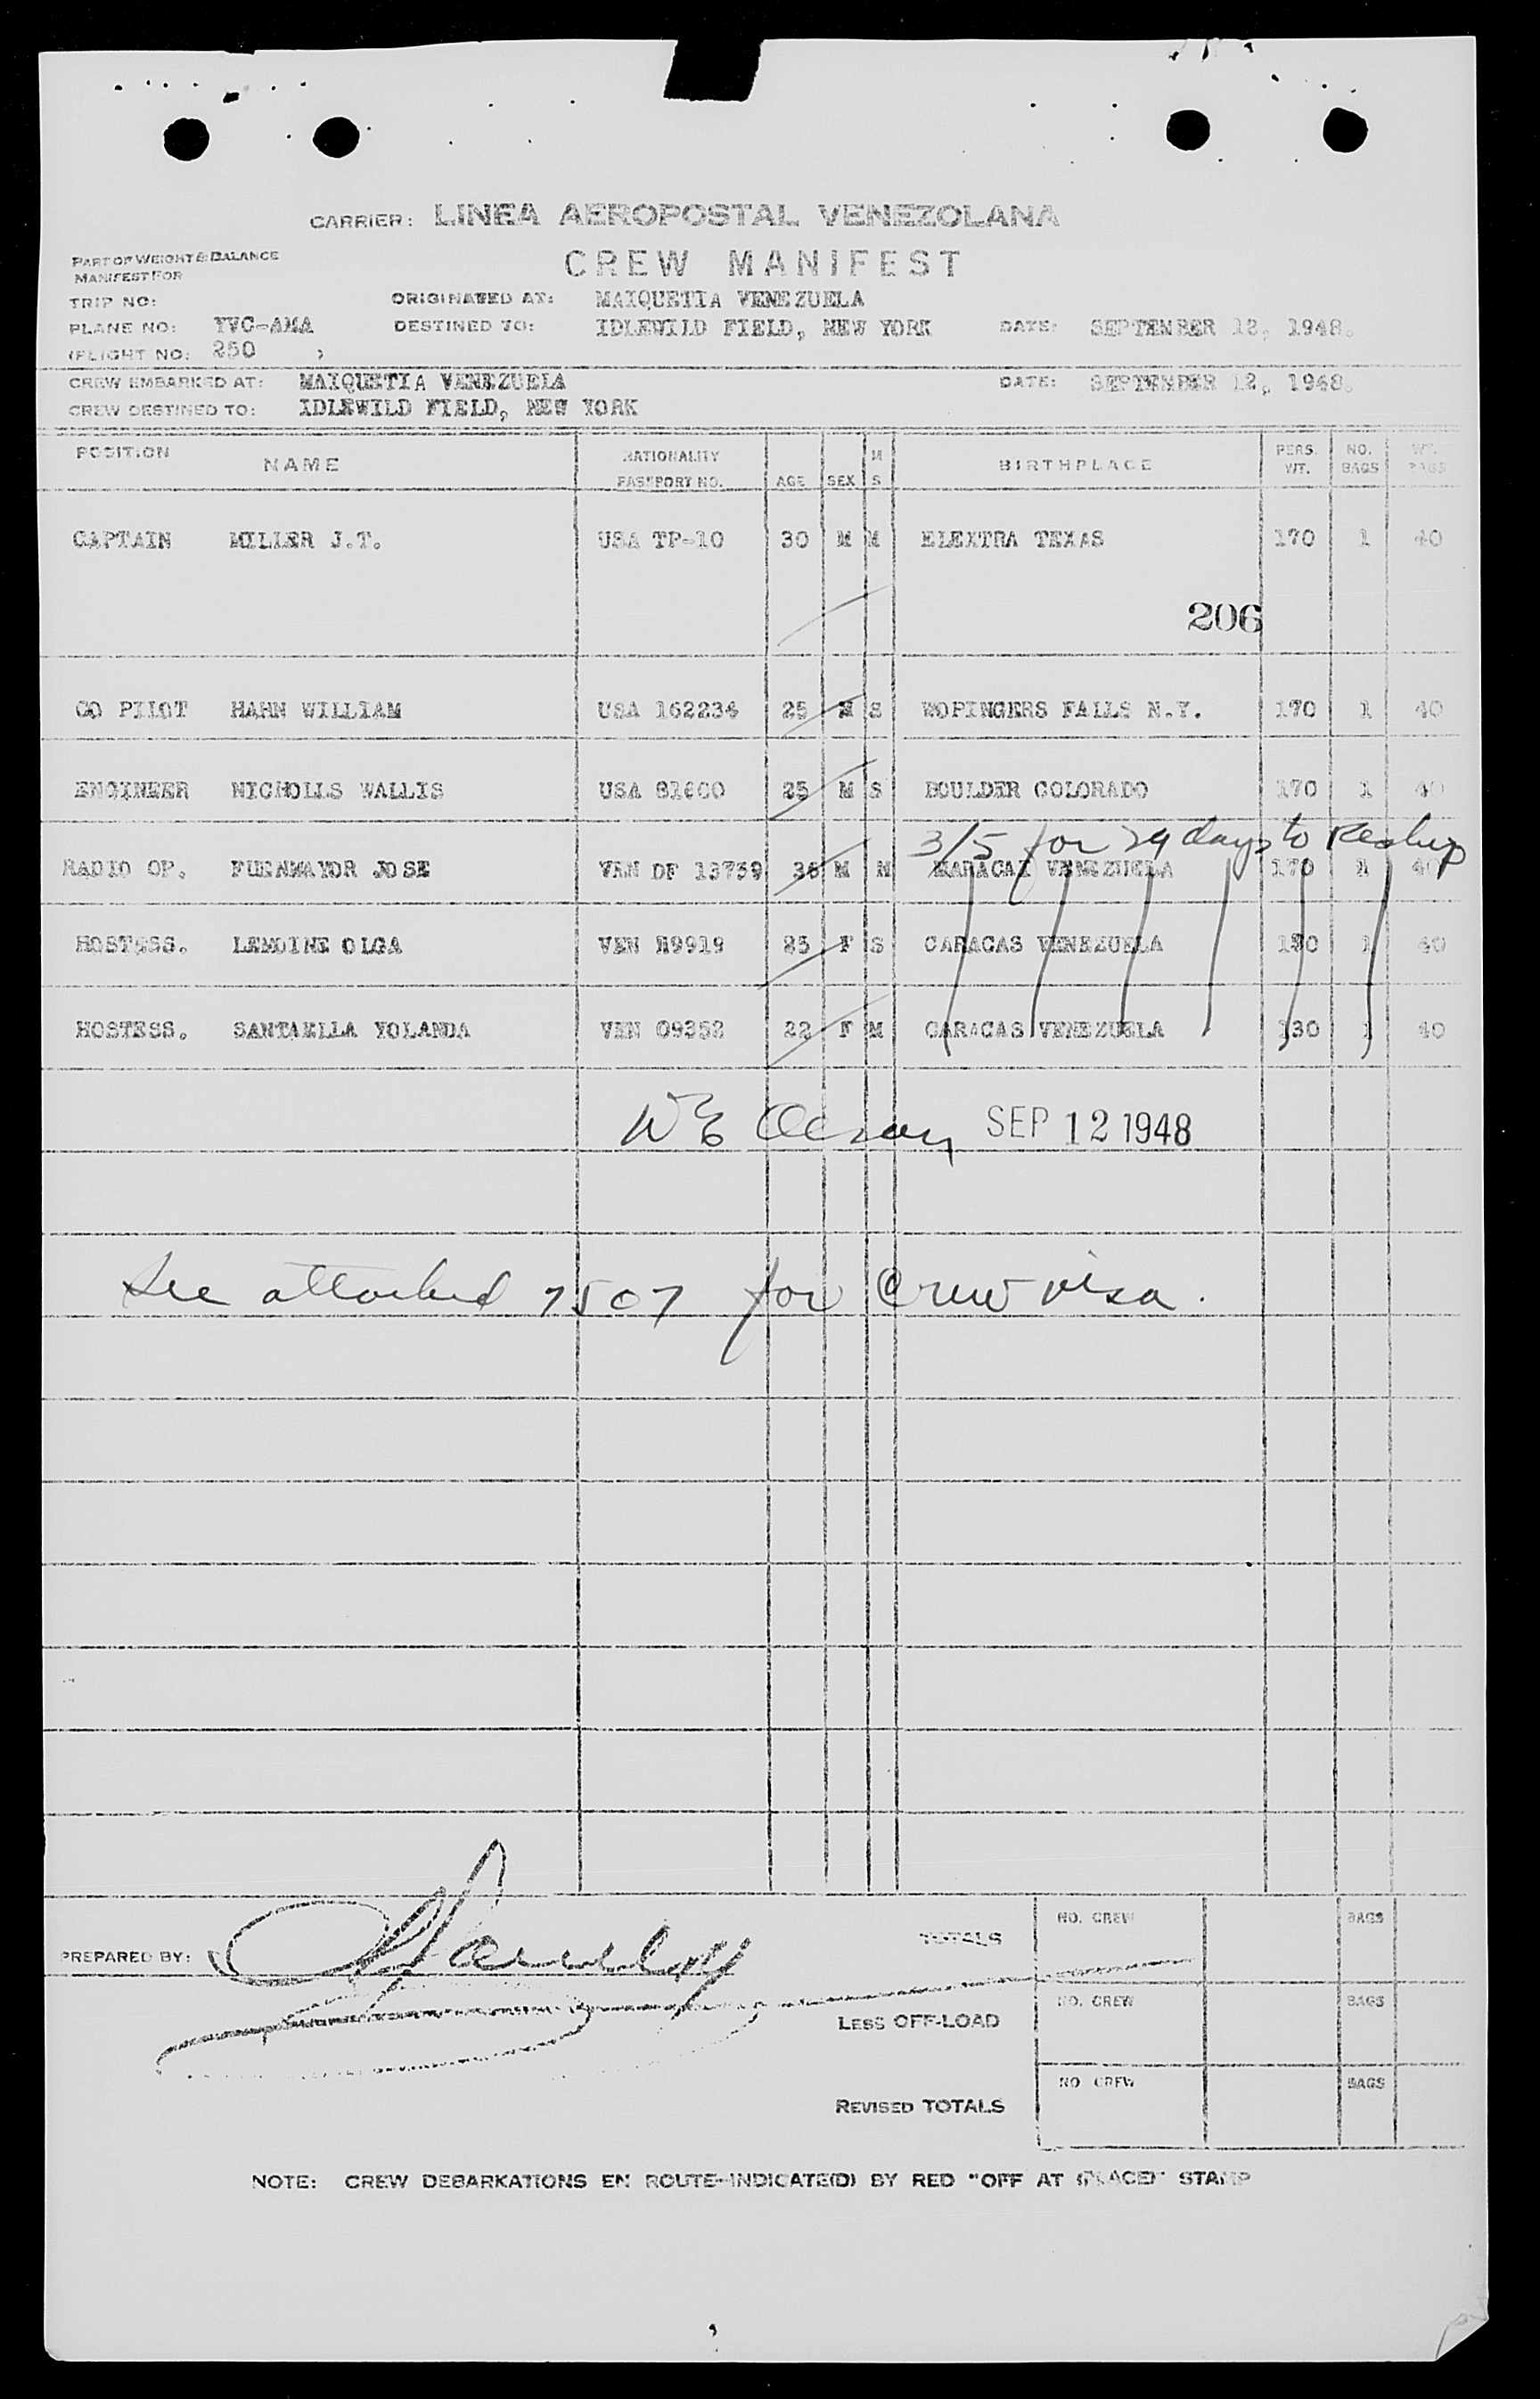 CARRIER: LINEA AEROPOSTAL VENEZOLANA
PART OF WEIGHT & BALANCE
MANIFEST FOR
CREW MANIFEST
TRIP NO: ORIGINATED AT: MAIQUETIA VENEZUELA
PLANE NO: YVC-AMA DESTINED TO: IDLEWILD FIELD, NEW YORK DATE: SEPTEMBER 12, 1948.
(FLIGHT NO: 250 )
CREW EMBARKED AT: MAIQUETIA VENEZUELA DATE: SEPTEMBER 12, 1948.
CREW DESTINED TO: IDLEWILD FIELD, NEW YORK
POSITION NAME NATIONALITY PASSPORT NO. AGE SEX M S BIRTHPLACE PERS. WT. NO. BAGS WT. BAGS
CAPTAIN MILLER J.T. USA TP-10 30 M M ELEXTRA TEXAS 170 1 40
206
CO PILOT HAHN WILLIAM USA 162234 25 M S WOPINGERS FALLS N.Y. 170 1 40
ENGINEER NICHOLLS WALLIS USA 81600 25 M S BOULDER COLORADO 170 1 40
3/5 for 29 days to Reship
RADIO OP. FUENMAYOR JOSE VEN DF 13739 36 M M MARACAI VENEZUELA 170 1 40
HOSTESS. LEMOINE OLGA VEN 19919 25 F S CARACAS VENEZUELA 130 1 40
HOSTESS. SANTAELLA YOLANDA VEN 09352 22 F M CARACAS VENEZUELA 130 1 40
SEP 12 1948
See attached 7507 for Crew visa.
PREPARED BY:
TOTALS NO. CREW BAGS
LESS OFF-LOAD NO. CREW BAGS
REVISED TOTALS NO. CREW BAGS
NOTE: CREW DEBARKATIONS EN ROUTE-INDICATE(D) BY RED "OFF AT (PLACE)" STAMP